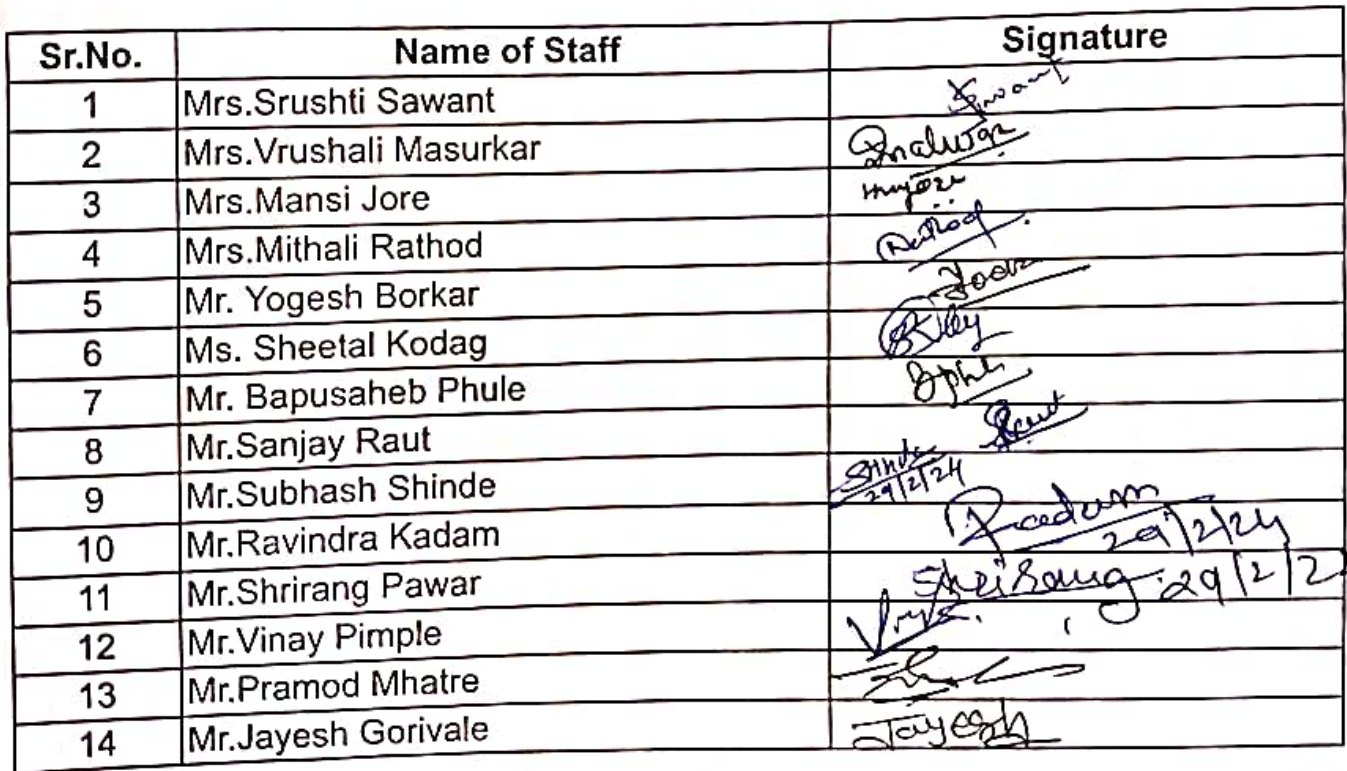 Sr.No. Name of Staff Signature
1 Mrs.Srushti Sawant
2 Mrs.Vrushali Masurkar
3 Mrs.Mansi Jore
4 Mrs.Mithali Rathod Rathod
5 Mr. Yogesh Borkar
6 Ms. Sheetal Kodag
7 Mr. Bapusaheb Phule
8 Mr.Sanjay Raut
9 Mr.Subhash Shinde Shinde 29/2/24
10 Mr.Ravindra Kadam 29/2/24
11 Mr.Shrirang Pawar Shrirang 29/2/2
12 Mr.Vinay Pimple
13 Mr.Pramod Mhatre
14 Mr.Jayesh Gorivale Jayesh